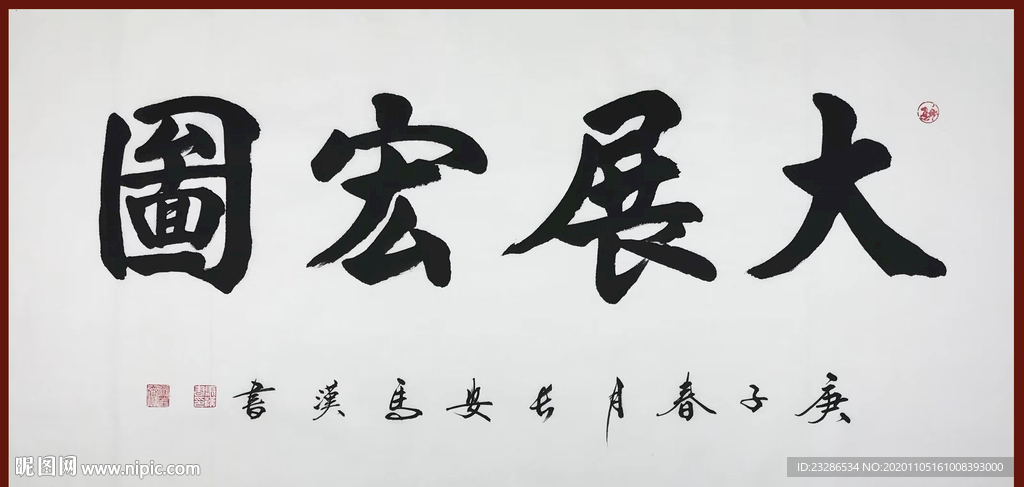 大展宏圖
庚子春月長安馬漢書
昵图网 www.nipic.com
ID:23286534 NO:20201105161008393000